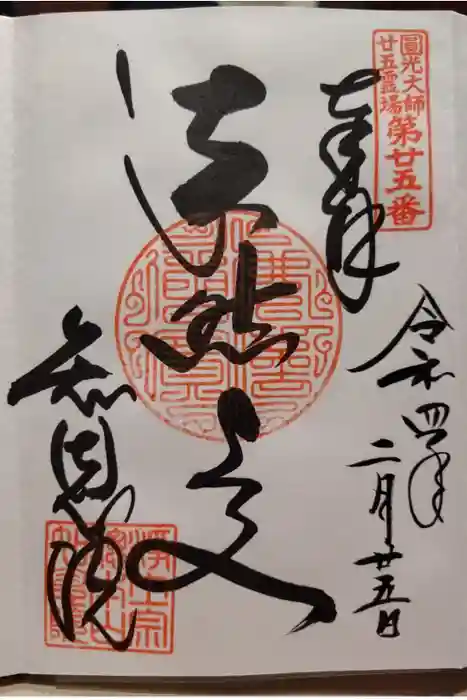 圓光大師
廿五霊場
第廿五番
奉拝
令和四年
二月廿五日
法然上人
知恩院
浄土宗
總本山
知恩院